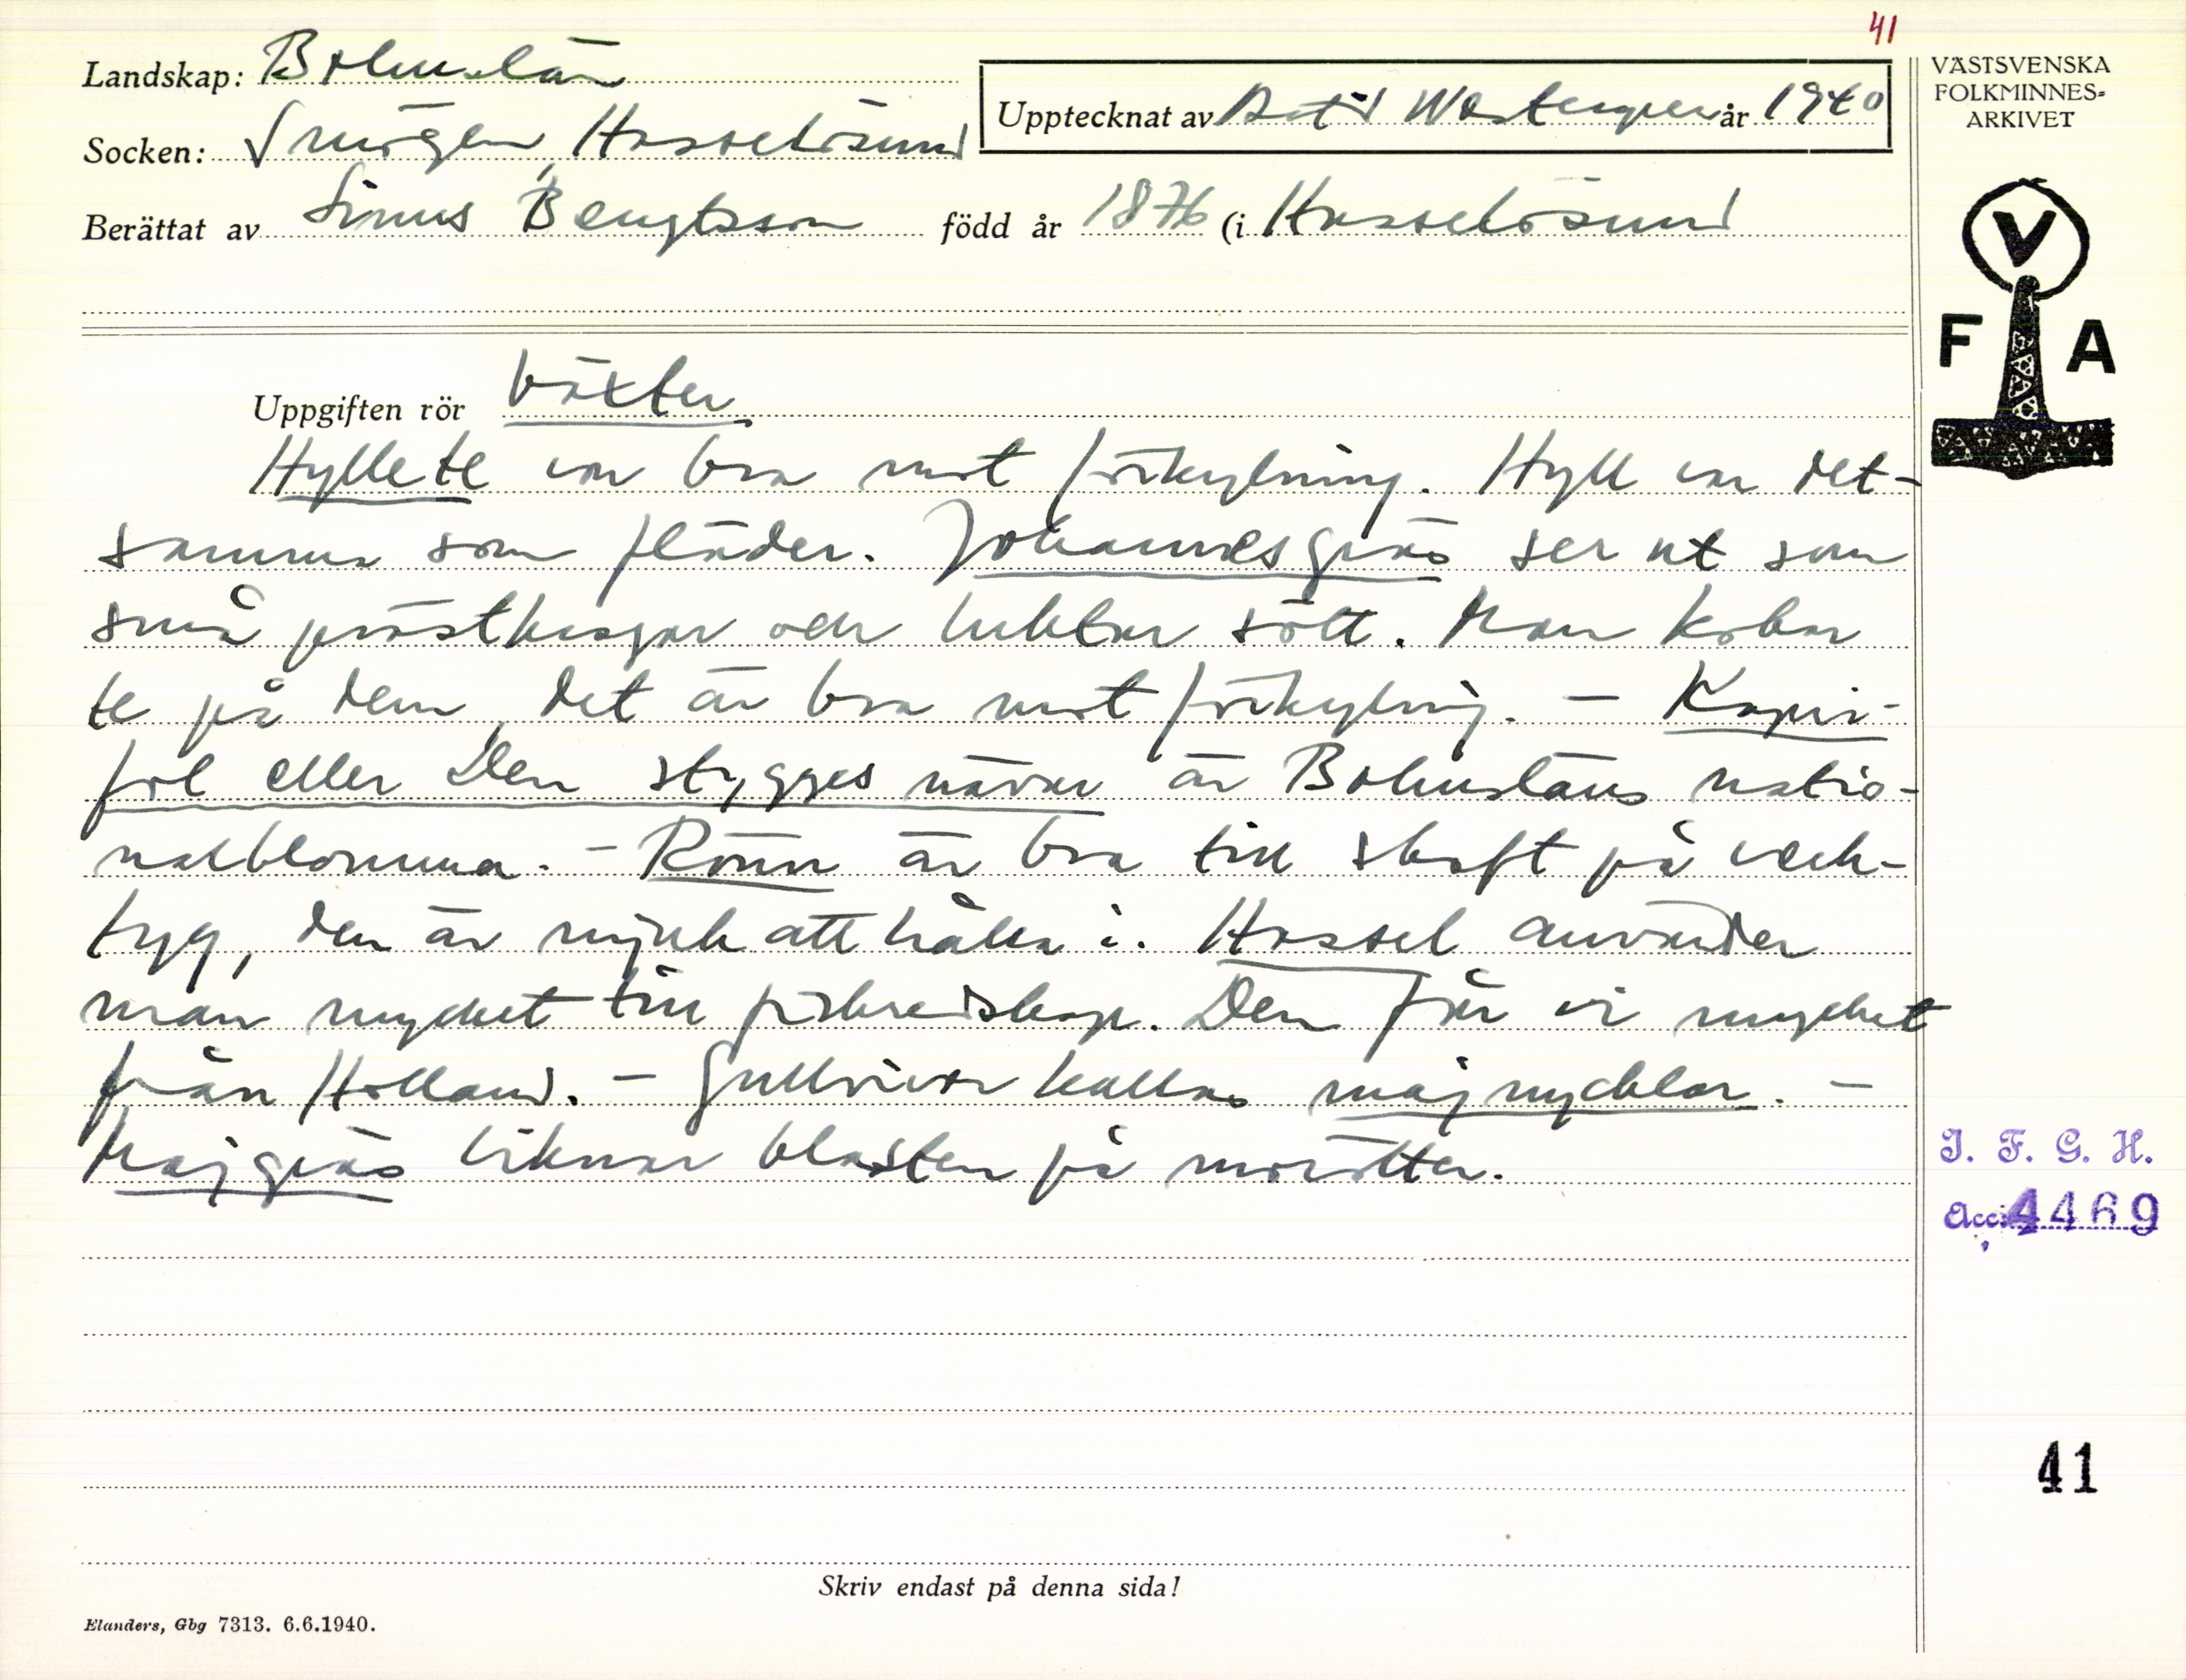 41
Landskap: Bohuslän
Upptecknat av Westergren år 1940
Socken: Smögen, Hasselösund
Berättat av Linus Bengtsson född år 1876 (i Hasselösund
VÄSTSVENSKA
FOLKMINNES-
ARKIVET
V
F A
Uppgiften rör växter
Hyllete var bra mot förkylning. Hyll var det-
samma som fläder. Johannesgräs ser ut som
små prästkragar och luktar sött. Man kokar
te på dem, det är bra mot förkylning. - Kapri-
fol eller Den stygges nävar är Bohusläns natio-
nalblomma. - Rönn är bra till skaft på verk-
tyg, den är mjuk att hålla i. Hassel använder
man mycket till fiskredskap. Den får vi mycket
från Holland. - Gullvivor kallas majnycklar. -
Majgräs liknar blasten på morötter.
I. F. G. H.
Acc: 4469
41
Skriv endast på denna sida!
Elanders, Gbg 7313. 6.6.1940.